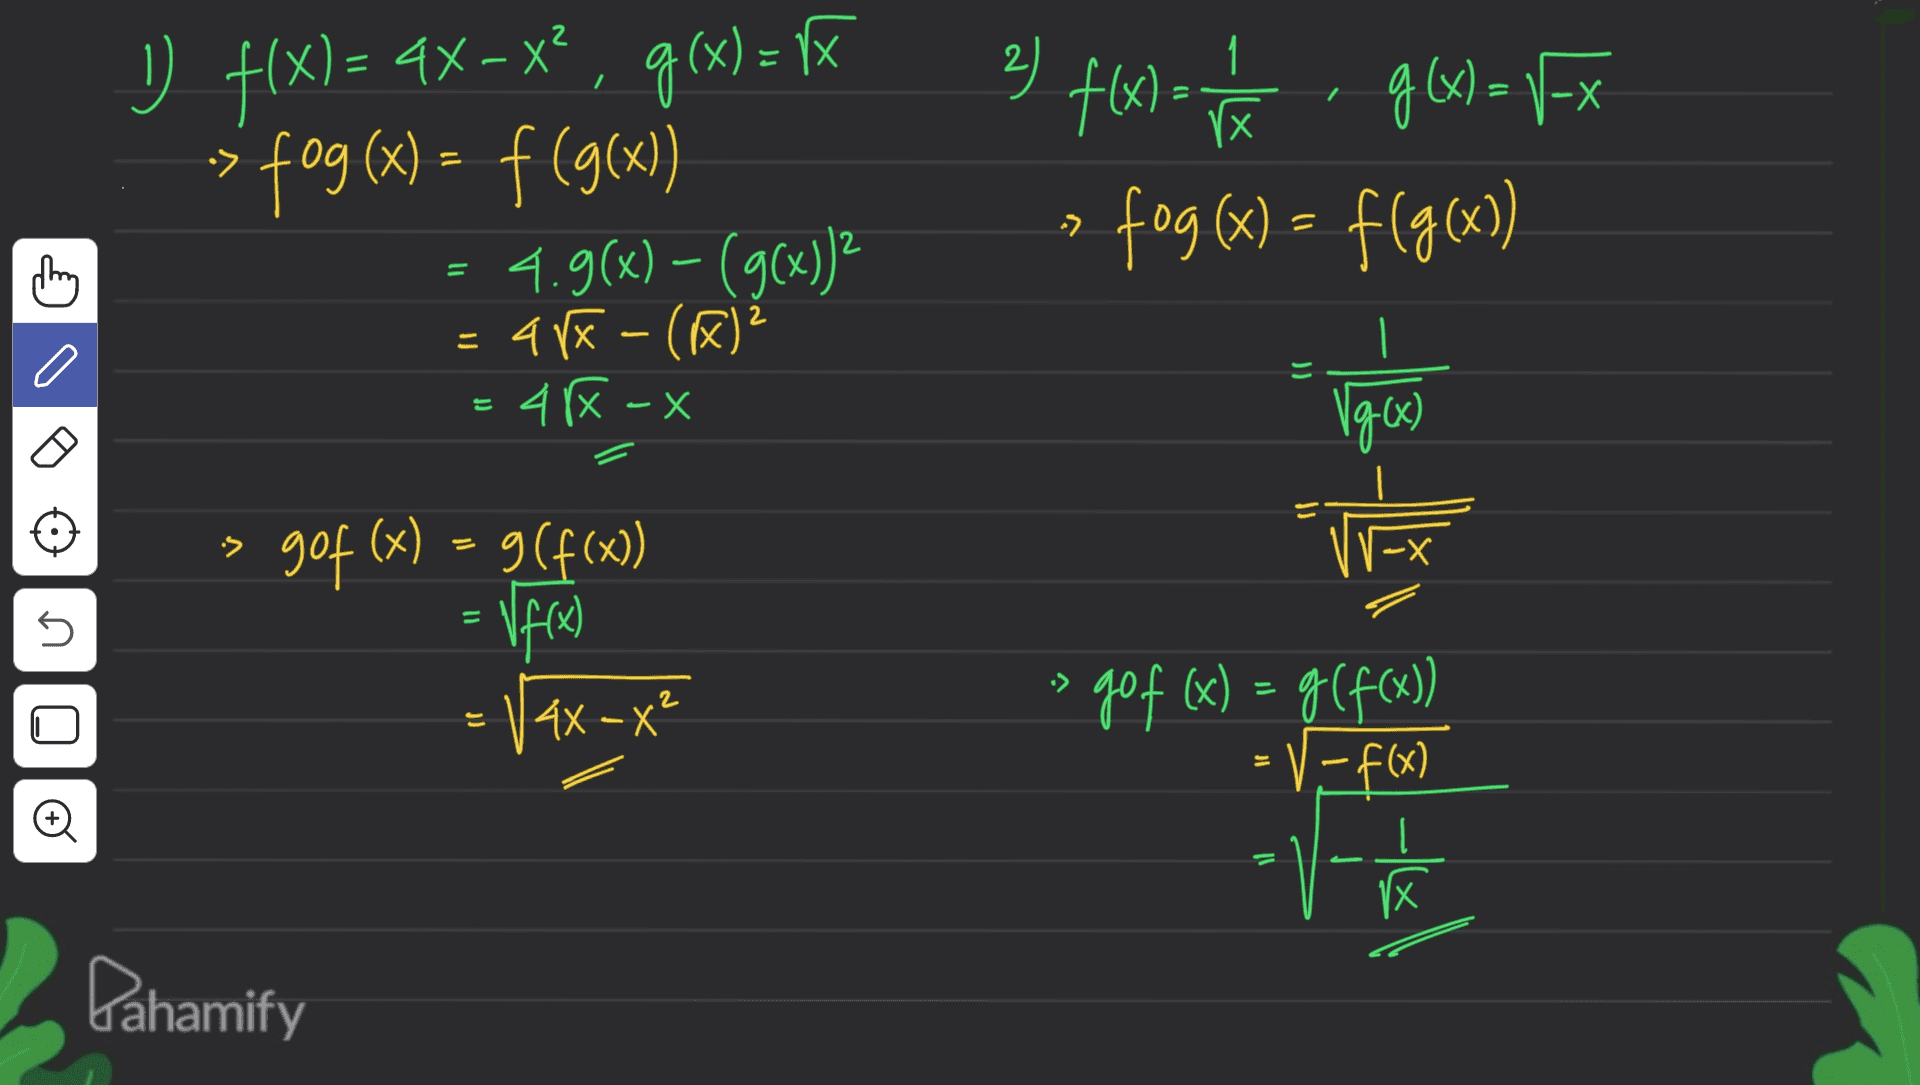 1) f(x) = 4x - x², g(x) = √x
•> fog (x) = f (g(x))
= 4.g(x) - (g(x))²
= 4√x - (√x)²
= 4√x - x
•> gof (x) = g(f(x))
= √f(x)
= √4x - x²
2) f(x) = 1/√x , g(x) = √-x
•> fog (x) = f(g(x))
= 1/√g(x)
= 1/√√-x
•> gof (x) = g(f(x))
= √-f(x)
= √-1/√x
Pahamify